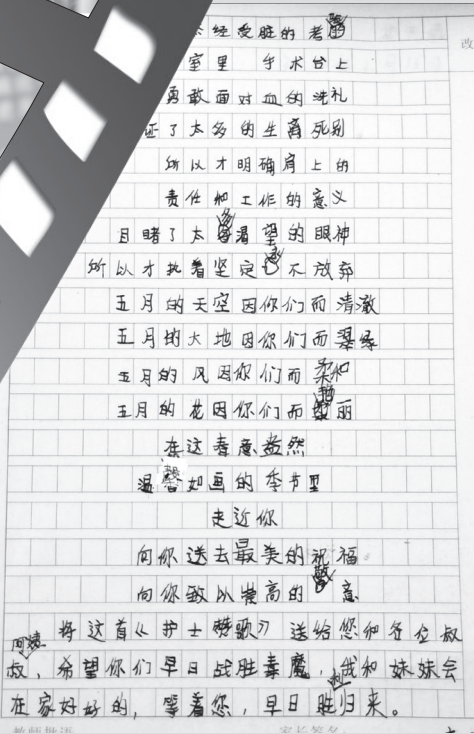 经受脏的考
室里 手术台上
勇敢面对血的洗礼
证了太多的生离死别
所以才明确肩上的
责任和工作的意义
目睹了太多渴望的眼神
所以才执着坚定不放弃
五月的天空因你们而清澈
五月的大地因你们而翠绿
五月的风因你们而柔和
五月的花因你们而艳丽
在这春意盎然
温馨如画的季节里
走近你
向你送去最美的祝福
向你致以崇高的 意
将这首《护士赞歌》送给您和各位叔
叔、阿姨希望你们早日战胜毒魔,我和妹妹会
在家好好的,等着您,早日胜归来。
教师批语 家长签名
改